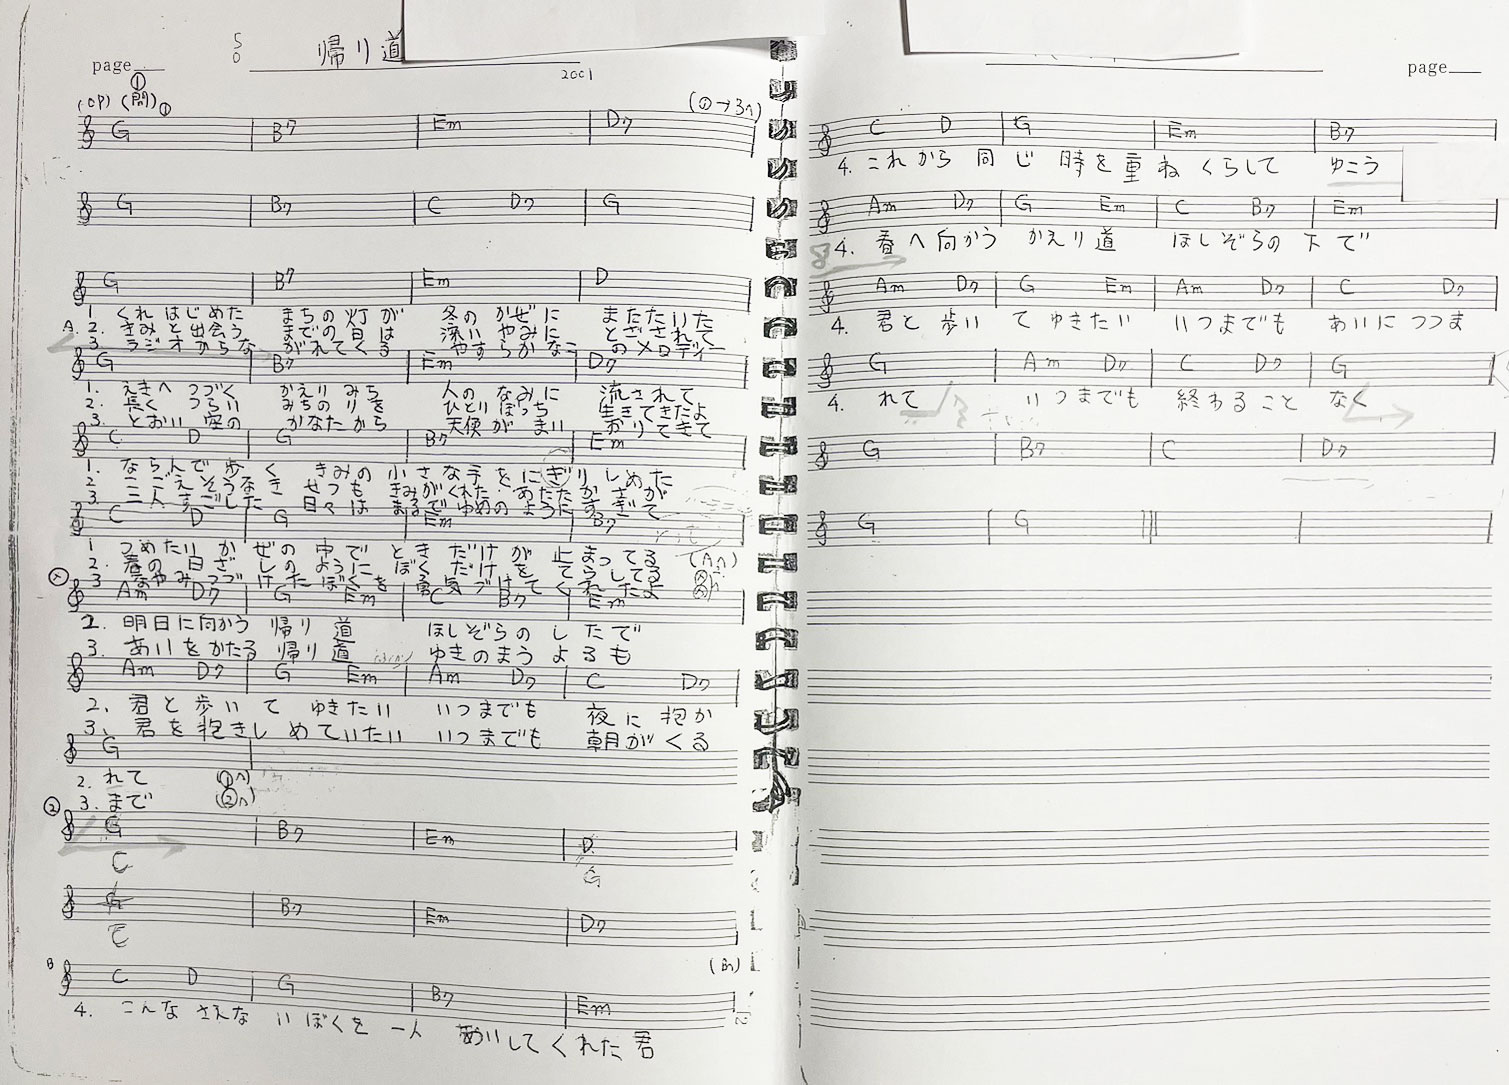 page
帰り道
2001
(OP) (間) ①
①
G B7 Em D7
G B7 C D7 G
G B7 Em D
1 くれはじめた まちの灯が 冬のかぜに またたいた
A. 2. きみと出会う までの日は 深いやみに とざされて
3 ラジオからな がれてくる やすらかなこ のメロディー
G B7 Em D7
1. えきへつづく かえりみち 人のなみに 流されて
2. 長くつらい みちのりを ひとりぼっち 生きてきたよ
3. とおい空の かなたから 天使がまい おりてきて
C D G B7 Em
1. ならんで歩く きみの小さな手をにぎりしめた
2 こごえそうなき せつも きみがくれた あたたかさが
3. 二人すごした 日々は まるでゆめのようにすぎて
C D G Em B7
1 つめたいかぜの中で ときだけが止まってる
2. 春の日ざしのように ぼくだけをてらしてる
3 なやみつづけたぼくを 勇気づけてくれたよ
Am D7 G Em C B7 Em
2. 明日に向かう 帰り道 ほしぞらのしたで
3. あいをかたる 帰り道 ゆきのまうよるも
Am D7 G Em Am D7 C D7
2. 君と歩いて ゆきたい いつまでも 夜に抱か
3. 君を抱きしめていたい いつまでも 朝がくる
G
2. れて (①へ)
3. まで (②へ)
②
G B7 Em D
C G
G B7 Em D7
B
C D G B7 Em
4. こんなさえな いぼくを 一人 あいしてくれた君
page
C D G Em B7
4. これから同じ時を重ねくらして ゆこう
Am D7 G Em C B7 Em
4. 春へ向かう かえり道 ほしぞらの下で
Am D7 G Em Am D7 C D7
4. 君と歩いてゆきたい いつまでも あいにつつま
G Am D7 C D7 G
4. れて いつまでも 終わること なく
G B7 C D7
G G